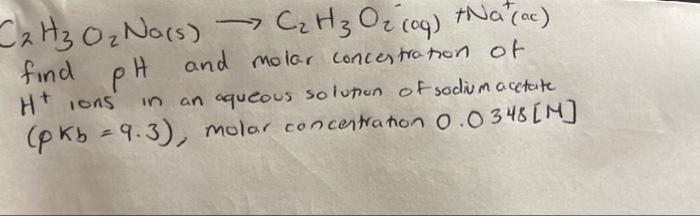 C₂H₃O₂Na(s) → C₂H₃O₂⁻(aq) + Na⁺(ac)
find pH and molar concentration of
H⁺ ions in an aqueous solution of sodium acetate
(pKb = 9.3), molar concentration 0.0348 [M]